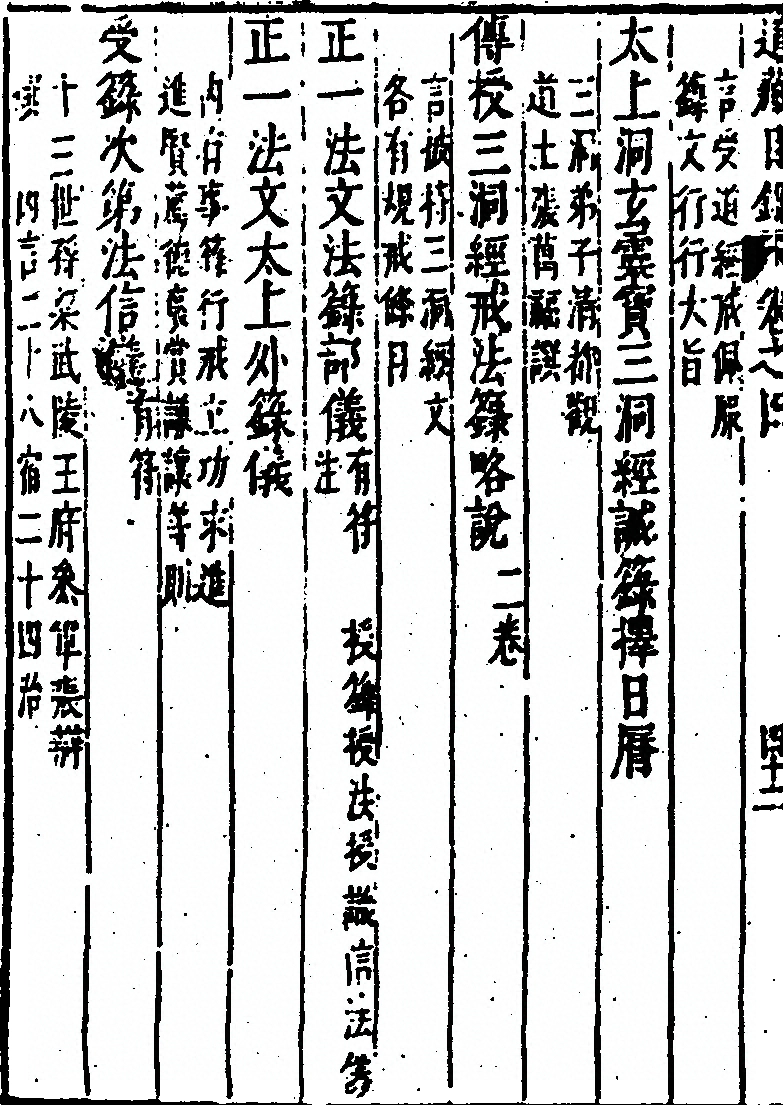 道藏目錄詳註卷之四　四十二
言受道經戒佩服
籙文行行大旨
太上洞玄靈寶三洞經誡籙擇日曆
三洞弟子清都觀
道士張萬福譔
傳授三洞經戒法籙略說　二卷
言彼持三洞經文
各有規戒條目
正一法文法籙部儀 有符 授籙授法授職信法等
正一法文太上外籙儀
內有事籙行戒立功求進
進賢薦德褒賞謙讓等則
受籙次第法信儀 有符
十三世孫梁武陵王府參軍張辯
撰　四言二十八宿二十四治